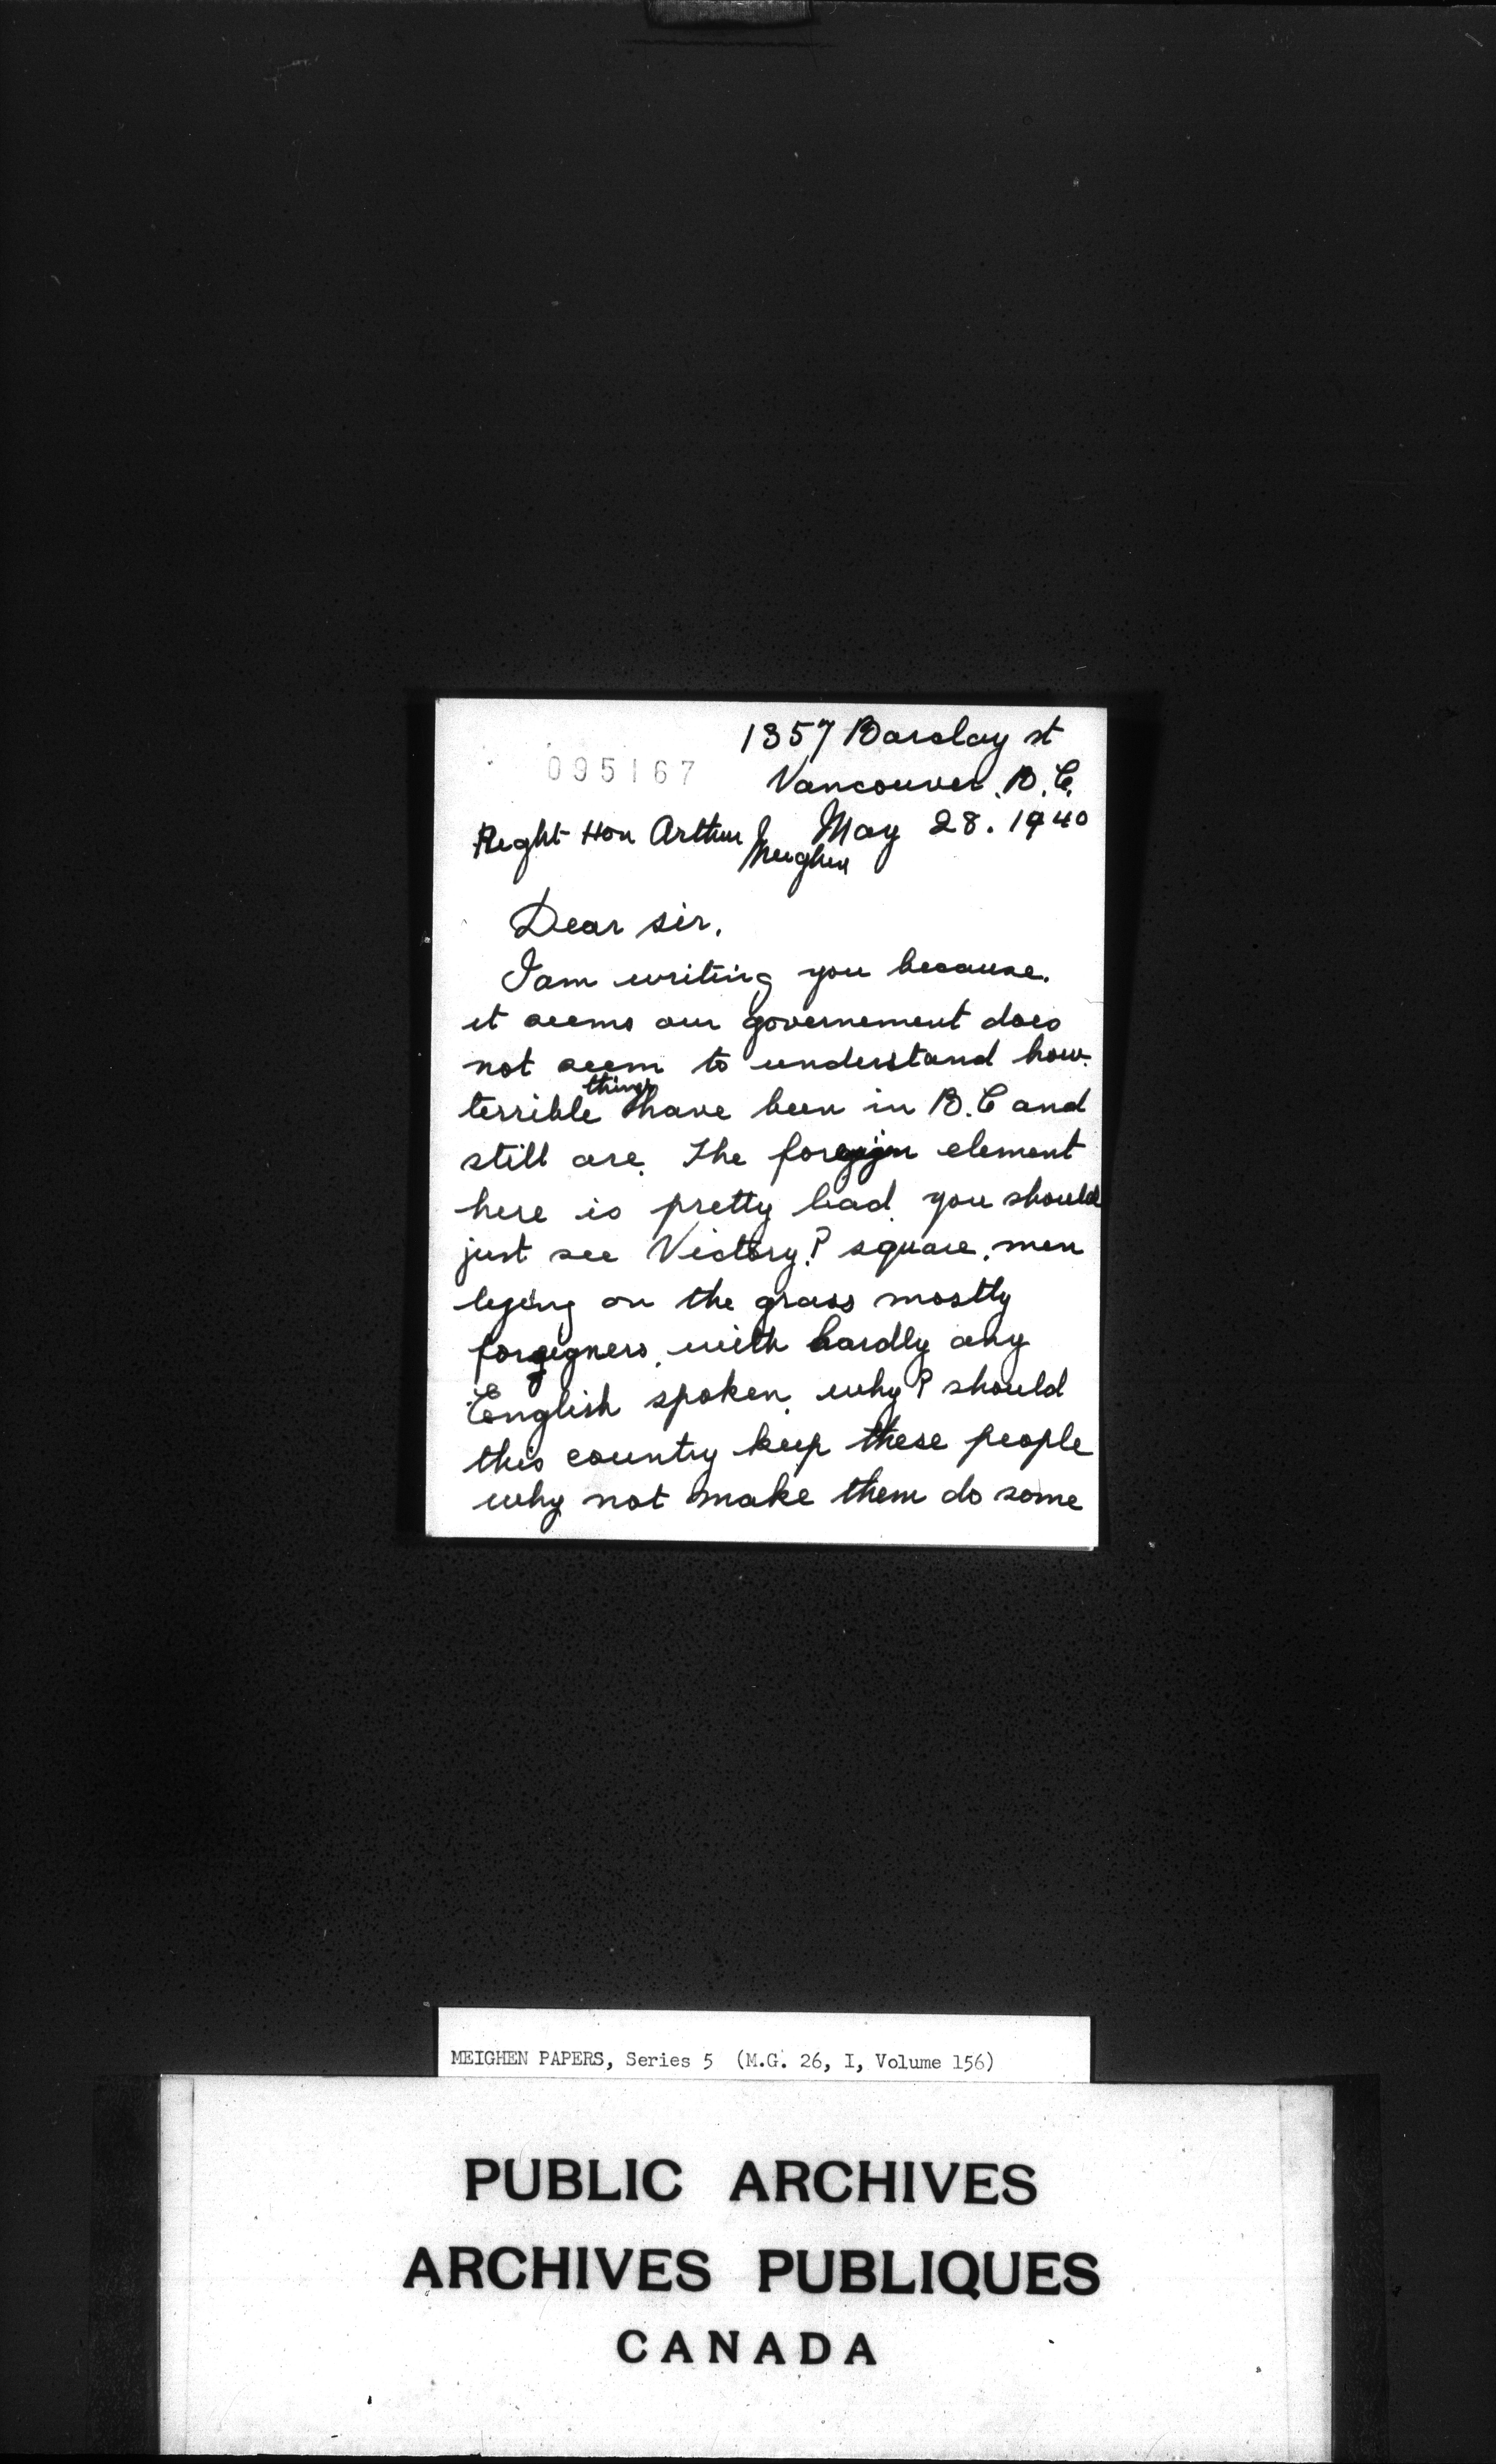 1357 Barclay st
095167
Vancouver. B.C.
Right Hon Arthur Meighen
May 28. 1940
Dear sir.
I am writing you because.
it seems our governement does
not seem to understand how
terrible things have been in B.C and
still are. The foreign element
here is pretty bad. you should
just see Victory? square. men
lying on the grass mostly
foreigners. with hardly any
English spoken. why? should
this country keep these people
why not make them do some
MEIGHEN PAPERS, Series 5 (M.G. 26, I, Volume 156)
PUBLIC ARCHIVES
ARCHIVES PUBLIQUES
CANADA